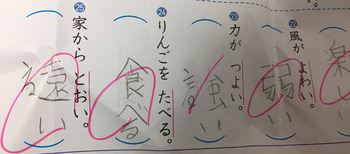 楽し
㉒ 風が よわい。
弱い
㉓ 力が つよい。
い
㉔ りんごを たべる。
食べる
㉕ 家から とおい。
遠い